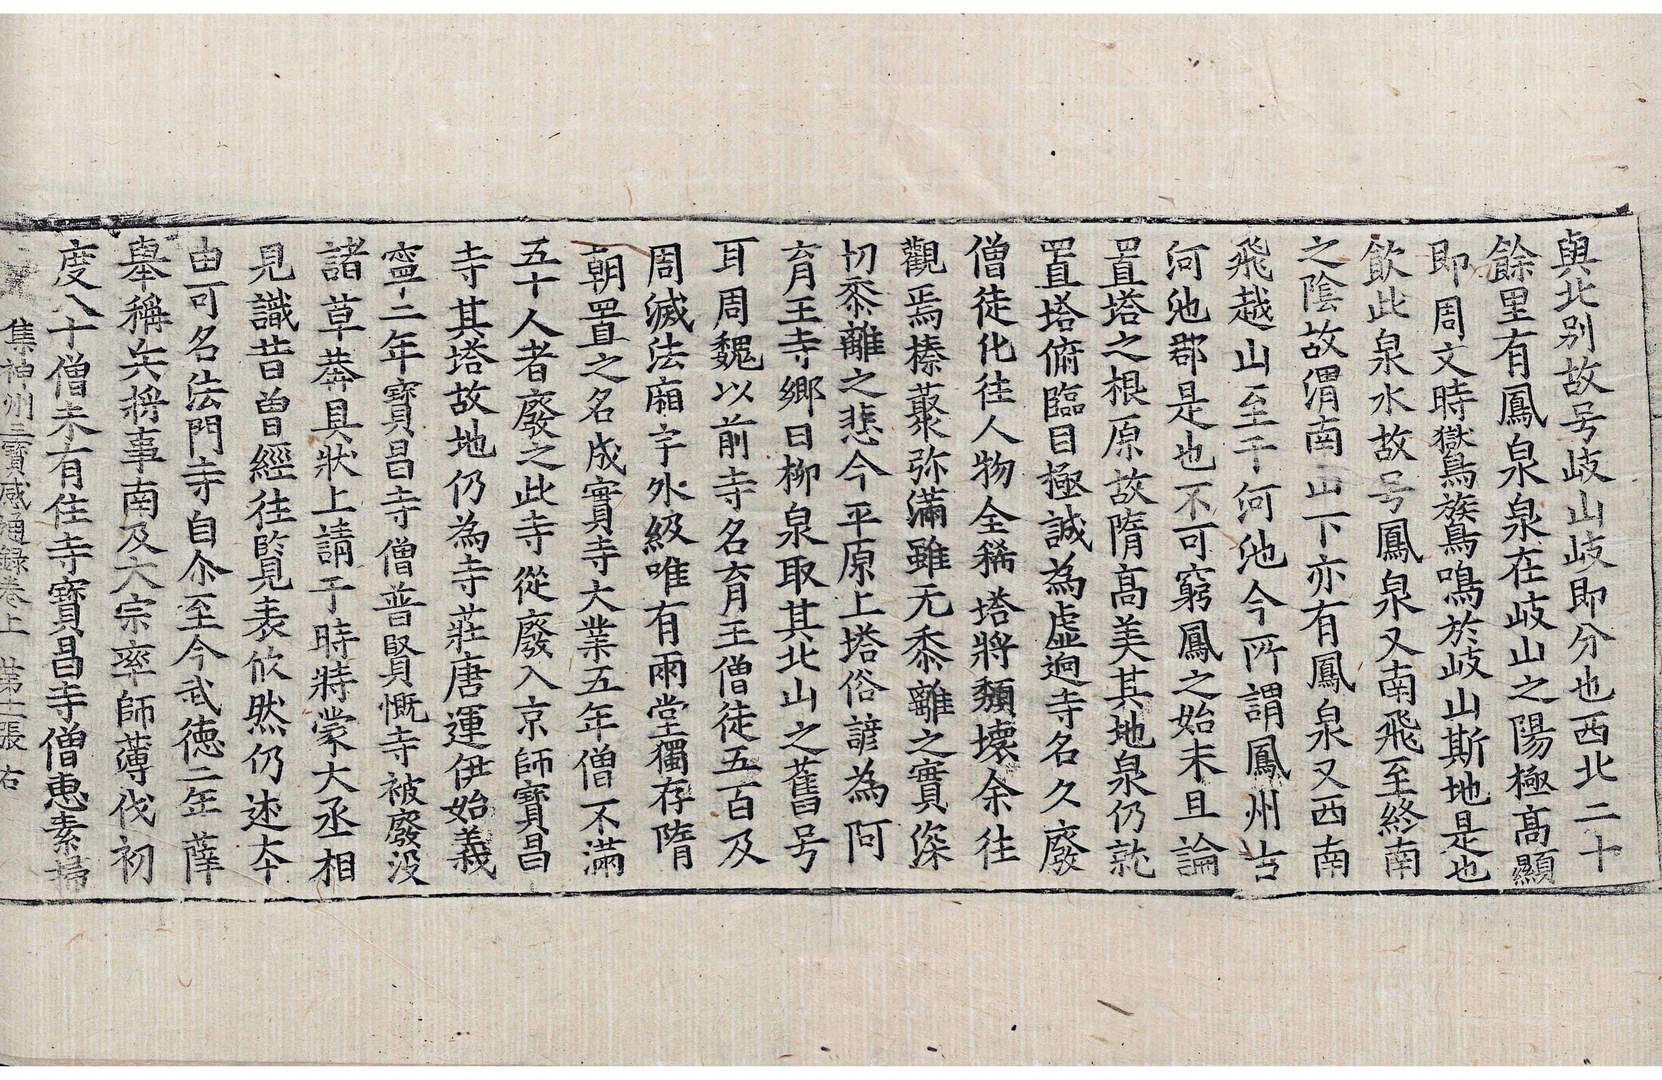 與北别故号歧山歧即分也西北二十
餘里有鳳泉泉在歧山之陽極高顯
即周文時嶽鳥族鳥鳴於歧山斯地是也
飲此泉水故号鳳泉又南飛至終南
之隂故渭南山下亦有鳳泉又西南
飛越山至于河池今所謂鳳州古
河池郡是也不可窮鳳之始末且論
置塔之根原故隋高美其地泉仍就
置塔俯臨目極誠為虛逈寺名久廢
僧徒化往人物全稀塔將頽壞余往
觀焉榛藂弥滿雖无黍離之實深
切黍離之悲今平原上塔俗諺為阿
育王寺鄉曰柳泉取其北山之舊号
耳周魏以前寺名育王僧徒五百及
周滅法廂宇外級唯有兩堂獨存隋
朝置之名成實寺大業五年僧不滿
五十人者廢之此寺從廢入京師寶昌
寺其塔故地仍為寺莊唐運伊始義
寧二年寶昌寺僧普賢慨寺被廢没
諸草莽具狀上請于時特蒙大丞相
見識昔曽經往覧表依然仍述夲
由可名法門寺自尒至今武徳二年薛
舉稱兵將事南及大宗率師薄伐初
度八十僧未有住寺寶昌寺僧惠素掃
集神州三寶感通録卷上 第十二張 右